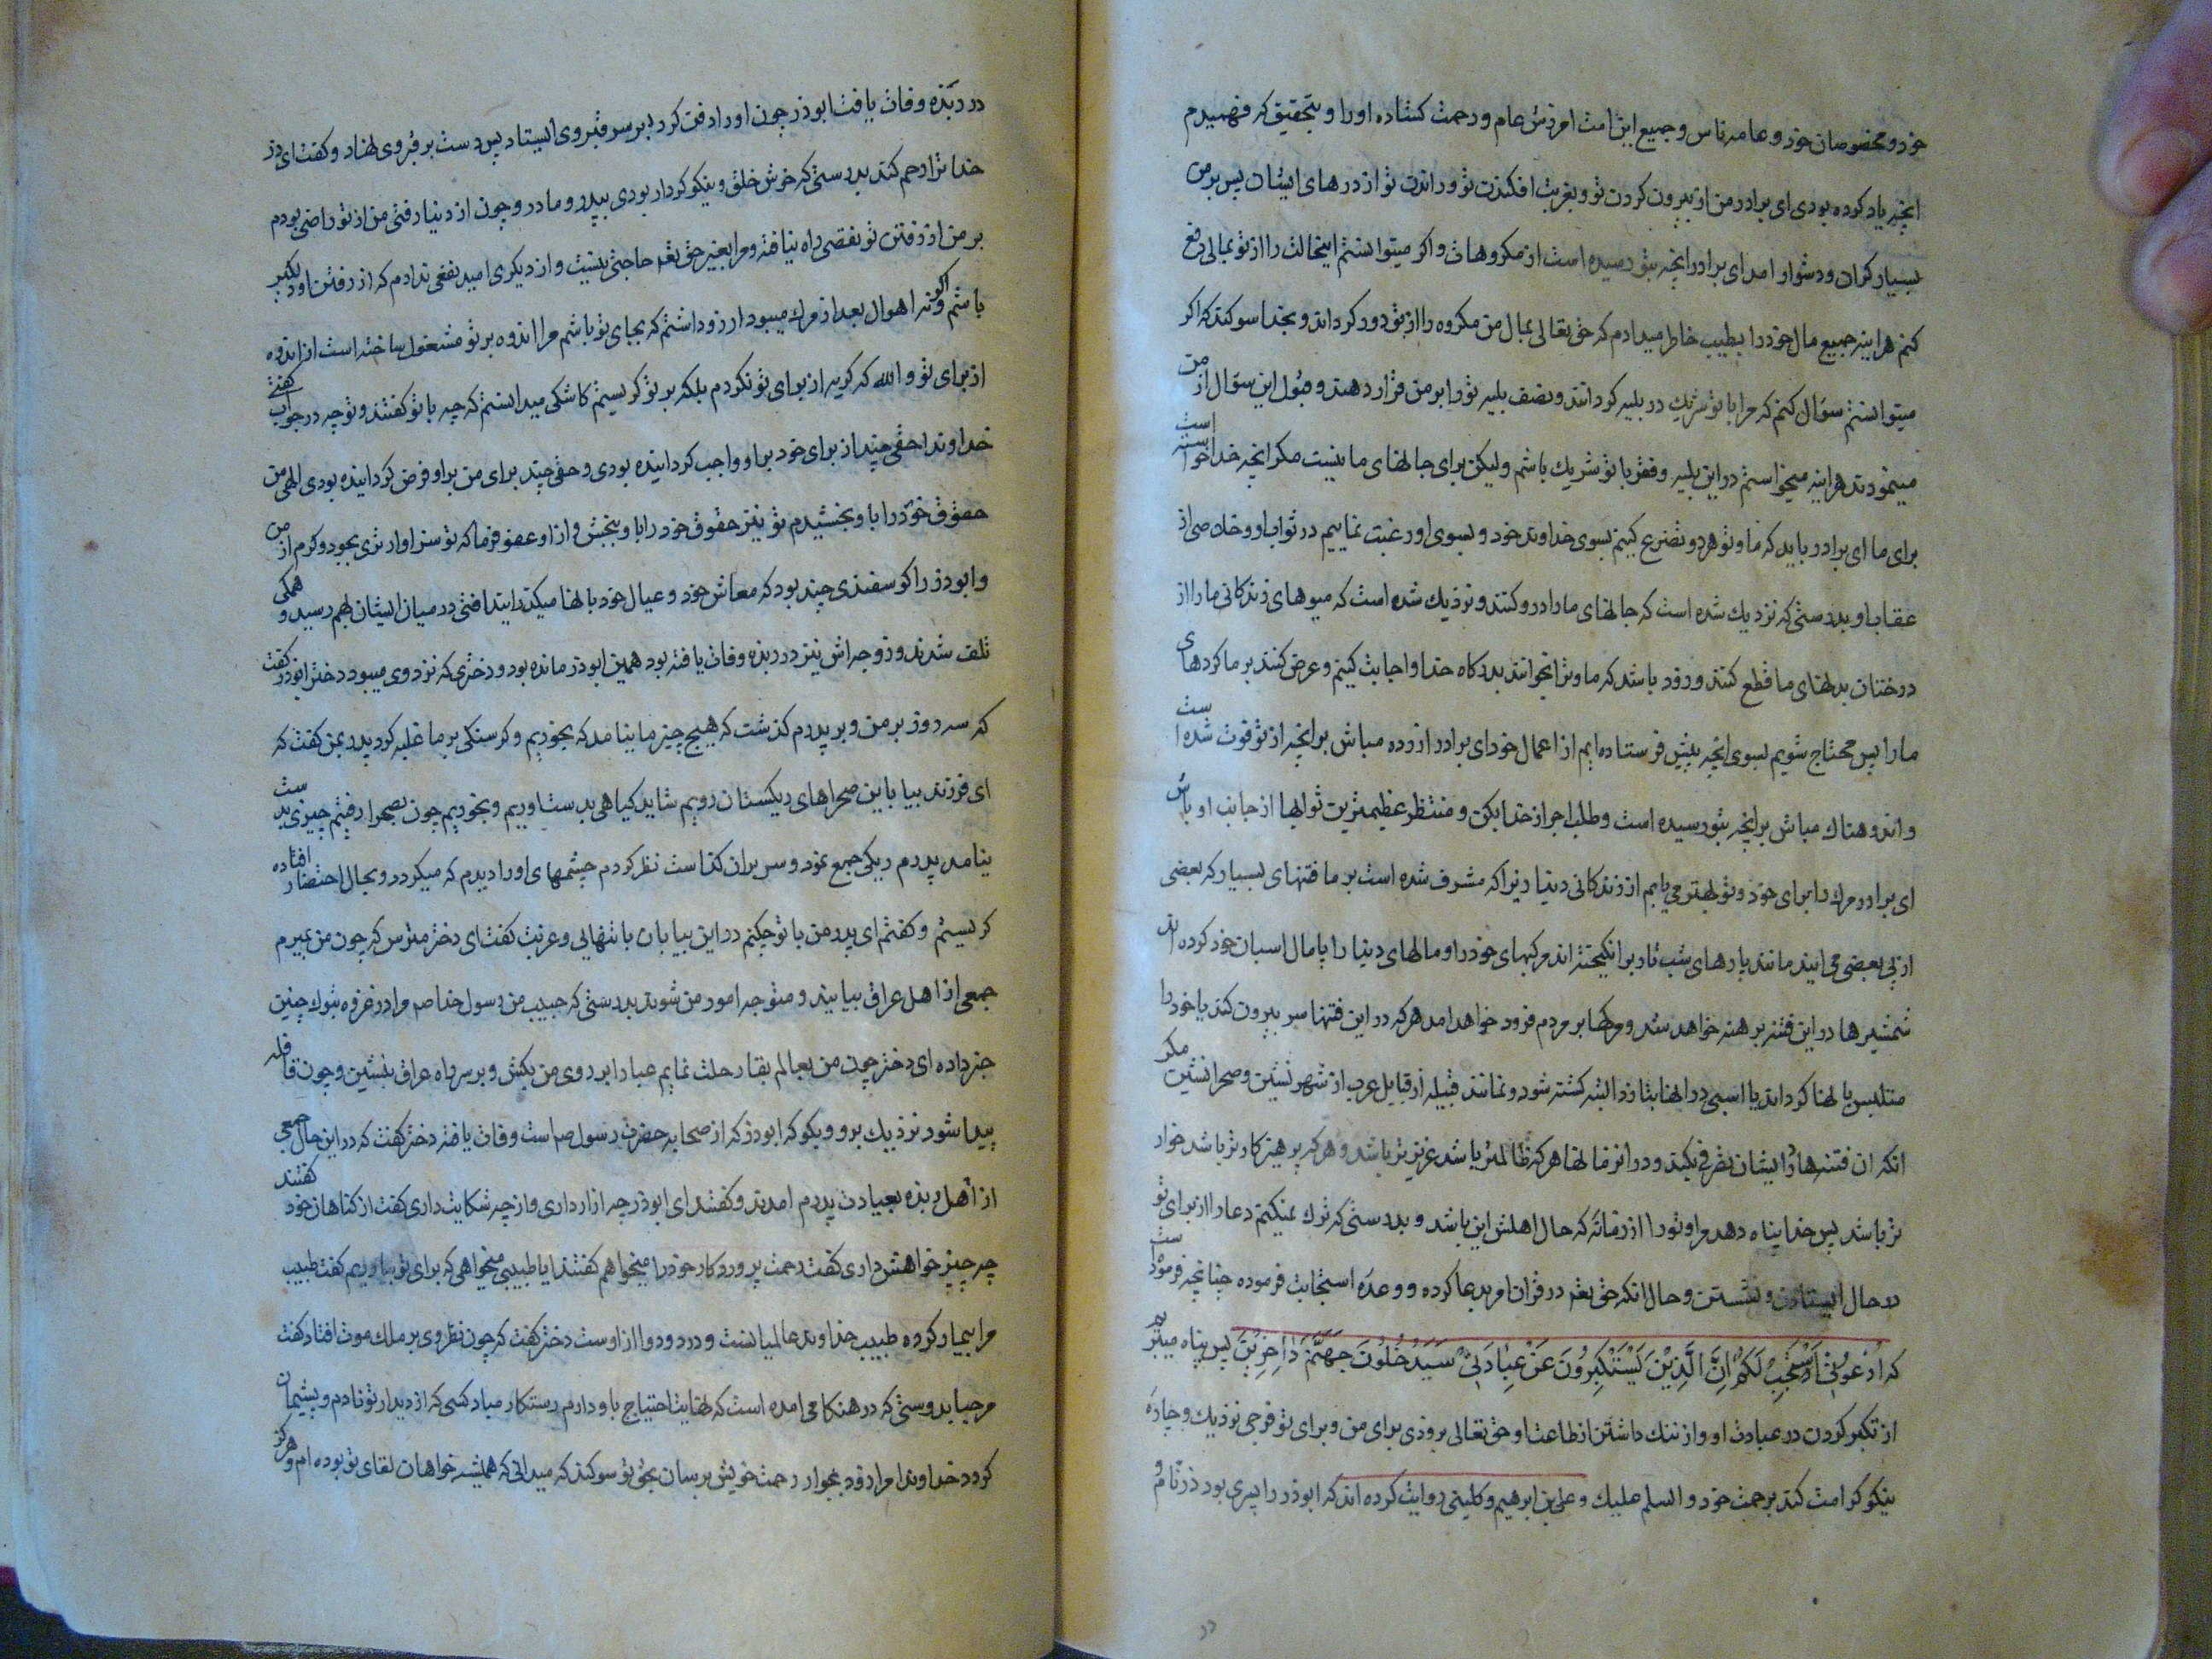 خود و مخصوصان خود و عامه ناس و جمیع این امت امرزش عام و رحمت کشاده اورا و بتحقیق که فهمیدم
انچه یاد کرده بودی ای برادر من از بیرون کردن تو و بغربت افکندن تو و راندن تو از درهای ایشان پس بر من
بسیار کران و دشوار امد ای برادر انچه بتو رسیده است از مکروهات و اکر میتوانستم اینحالت را از تو بمالی دفع
کنم هراینه جمیع مال خود را بطیب خاطر میدادم که حق تعالی بمال من مکروه را از تو دور کرداند و بخدا سوکند که اکر
میتوانستم سؤال کنم که مرا با تو شریک در بلیه کردانند و نصف بلیه تو را بر من قرار دهند و قبول این سؤال از من
مینمودند هراینه میخواستم در این بلیه و فقر با تو شریک باشم ولیکن برای جانهای ما نیست مکر انچه خدا خواسته است
برای ما ای برادر باید که ما و تو هردو تضرع کنیم بسوی خداوند خود و بسوی او رغبت نماییم در ثواب او و خلاصی از
عقاب او بدرستی که نزدیک شده است که جانهای ما را درو کنند و نزدیک شده است که میوهای زندکانی ما را از
درختان بدنهای ما قطع کنند و زود باشد که ما و ترا بخوانند بدرکاه خدا و اجابت کنیم و عرض کنند بر ما کردهای
ما را پس محتاج شویم بسوی انچه پیش فرستاده ایم از اعمال خود ای برادر ازرده مباش بر انچه از تو فوت شده است
و اندوهناک مباش بر انچه بتو رسیده است و طلب اجر از خدا بکن و منتظر عظیمترین ثوابها از جانب او باش
ای برادر مرک را برای خود و تو بهتر می یابم از زندکانی دنیا زیرا که مشرف شده است بر ما فتنهای بسیار که بعضی
از پی بعضی می ایند مانند پارهای شب تار برانکیخته اند مرکبهای خود را و مالهای دنیا را پامال اسبان خود کرده اند
شمشیرها در این فتنه برهنه خواهد شد و مرکها بر مردم فرود خواهد امد هرکه در این فتنها سر بیرون کند یا خود را
متلبس بانها کرداند یا اسبی در انها بتازد البته کشته شود و نمانند قبیله از قبایل عرب از شهر نشین و صحرا نشین مکر
انکه ان فتنه ها در ایشان تفرقی بکند و در ان زمانها هرکه ظالمتر باشد عزیزتر باشد و هرکه پرهیزکارتر باشد خوار
تر باشد پس خدا پناه دهد مرا و تو را از زمانه که حال اهلش این باشد و بدرستی که ترک نمیکنم دعا را از برای تو
در حال ایستادن و نشستن و حال انکه حق تعه در قران امر بدعا کرده و وعده استجابت فرموده چنانچه فرموده است
که اُدْعُونِي أَسْتَجِبْ لَكُمْ اِنَّ الَّذِيْنَ يَسْتَكْبِرُونَ عَنْ عِبَادَتِيْ سَيَدْخُلُونَ جَهَنَّمَ دَاخِرِيْنَ پس پناه میبریم
از تکبر کردن در عبادت او و از ننک داشتن از طاعت او حق تعالی بزودی برای من و برای تو فرجی نزدیک و چاره
نیکو کرامت کند برحمت خود و السلم علیک و علی ابن ابرهیم و کلینی روایت کرده اند که ابوذر را پسری بود ذر نام و
در ربذه وفات یافت ابوذر چون اورا دفن کرد بر سر قبر وی ایستاد پس دست بر قبر وی نهاد و کفت ای ذر
خدا ترا رحم کند بدرستی که خوش خلق و نیکو کردار بودی بپدر و مادر و چون از دنیا رفتی من از تو راضی بودم
بر من از رفتن تو نقصی راه نیافته و مرا بغیر حق تعه حاجتی نیست و از دیکری امید نفعی ندارم که از رفتن او دلکیر
باشم و اکر نه اهوال بعد از مرک میبود ارزو داشتم که بجای تو باشم مرا اندوه بر تو مشغول ساخته است از اندوه
از برای تو و الله که کریه از برای تو نکردم بلکه بر تو کریستم کاشکی میدانستم که چه با تو کفتند و تو چه در جواب کفتی
خداوندا حقی چند از برای خود بر او واجب کردانیده بودی و حقی چند برای من بر او فرض کردانیده بودی الهی من
حقوق خود را باو بخشیدم تو نیز حقوق خود را باو ببخش و از او عفو فرما که تو سزاوارتری بجود و کرم از من
و ابوذر را کوسفندی چند بود که معاش خود و عیال خود بانها میکذرانید افتی در میان ایشان بهم رسید و همکی
تلف شدند و زوجه اش نیز در ربذه وفات یافته بود همین ابوذر مانده بود و دختری که نزد وی میبود دختر ابوذر کفت
که سه روز بر من و بر پدرم کذشت که هیچ چیز ما بنامد که بخوریم و کرسنکی بر ما غلبه کرد پدر بمن کفت که
ای فرزند بیا باین صحراهای ریکستان رویم شاید کیاهی بدست اوریم و بخوریم چون بصحرا رفتیم چیزی بدست
نیامد پدرم ریکی جمع نمود و سر بران کذاست نظر کردم چشمهای او را دیدم که میکردد و بحال احتضار افتاده
کریستم و کفتم ای پدر من با تو چکنم در این بیابان با تنهایی و غربت کفت ای دختر مترس که چون من بمیرم
جمعی از اهل عراق بیایند و متوجه امور من شوند بدرستی که حبیب من رسول خدا صم مرا در غزوه تبوک چنین
خبر داده ای دختر چون من بعالم بقا رحلت نمایم عبا را بر روی من بکش و بر سر راه عراق بنشین و چون قافله
پیدا شود نزدیک برو و بکو که ابوذر که از صحابه حضرت رسول صم است وفات یافته دختر کفت که در این حال جمعی
از اهل ربذه بعیادت پدرم امدند و کفتند ای ابوذر چه ازار داری و از چه شکایت داری کفت از کناهان خود کفتند
چه چیز خواهش داری کفت رحمت پروردکار خود را میخواهم کفتند ایا طبیبی میخواهی که برای تو بیاوریم کفت طبیب
مرا بیمار کرده طبیب خداوند عالمیانست و درد و دوا از اوست دختر کفت که چون نظر وی بر ملک موت افتاد کفت
مرحبا بدوستی که در هنکامی امده است که نهایت احتیاج باو دارم رستکار مباد کسی که از دیدار تو نادم و پشیمان
کردد خداوندا مرا زود بجوار رحمت خویش برسان بحق تو سوکند که میدانی که همیشه خواهان لقای تو بوده ام و هرکز